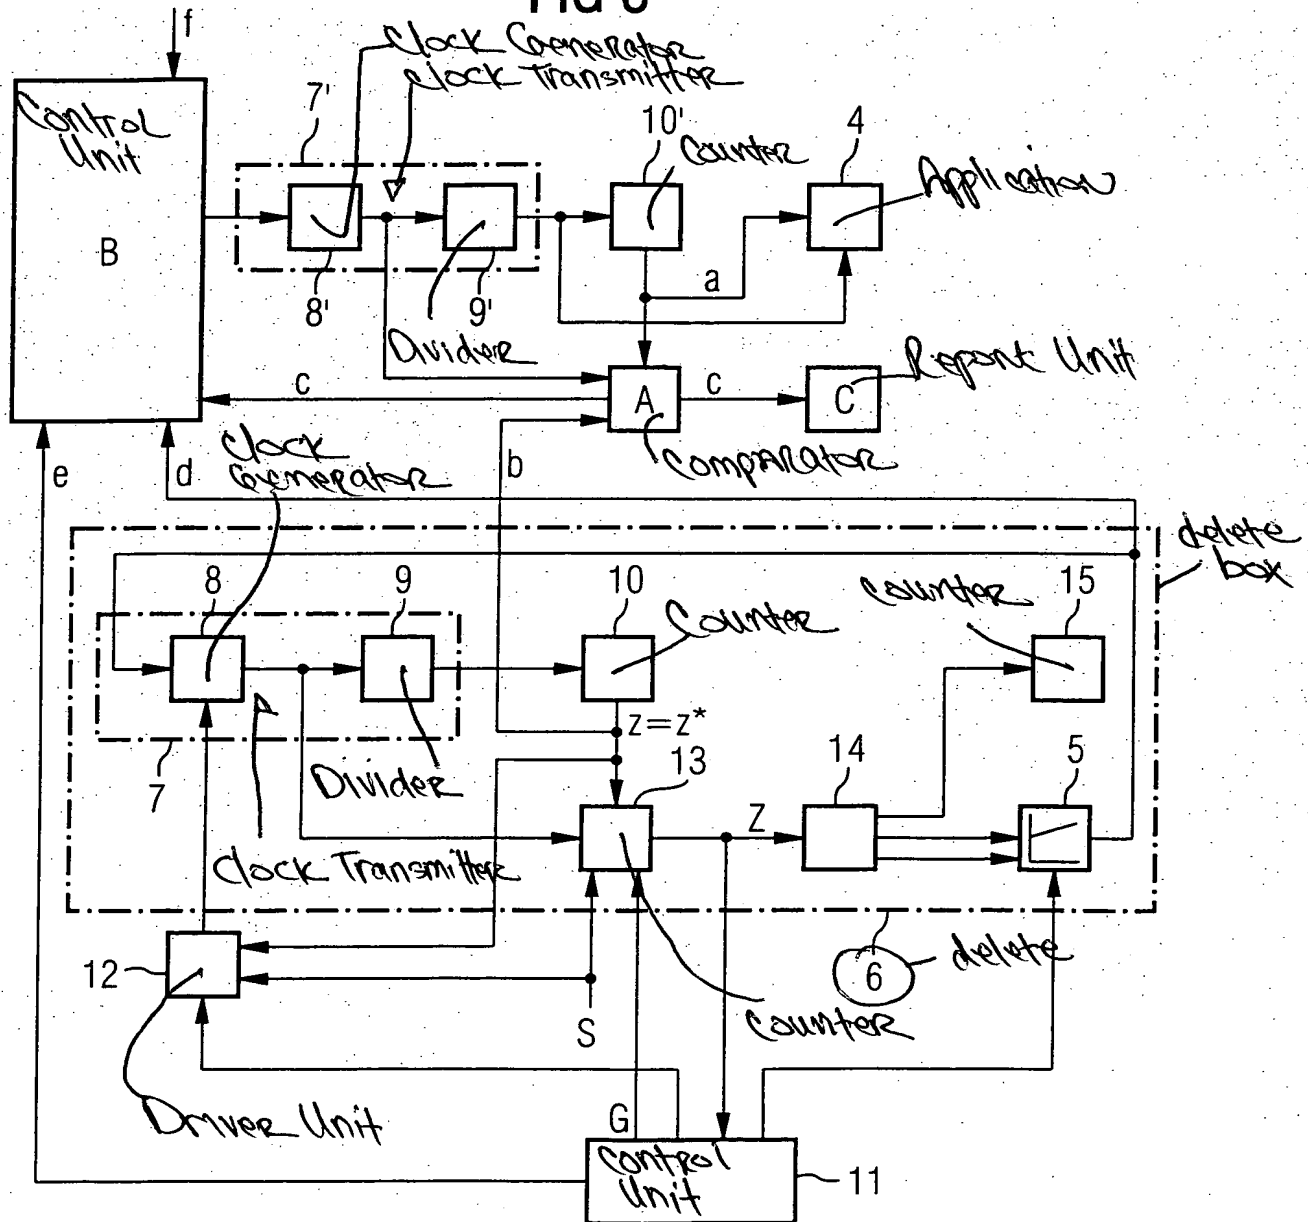 f
Clock Generator
Clock Transmitter
Control
Unit
7'
10'
Counter
4
Application
B
8'
9'
Divider
a
c
A
c
C
Report Unit
Comparator
e
d
Clock
Generator
b
delete
box
8
9
10
Counter
Counter
15
z=z*
7
Divider
13
14
5
Z
Clock Transmitter
12
S
6
delete
Counter
Driver Unit
G
Control
Unit
11